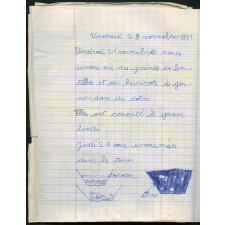 Vendredi 28 novembre 1991
Vendredi 21 novembre nous
avons mis des graines de len-
tilles et de haricots à ger-
mer dans du coton.
Elles ont commencé à germer
lundi
Jeudi 28 nous avons mis
dans la terre